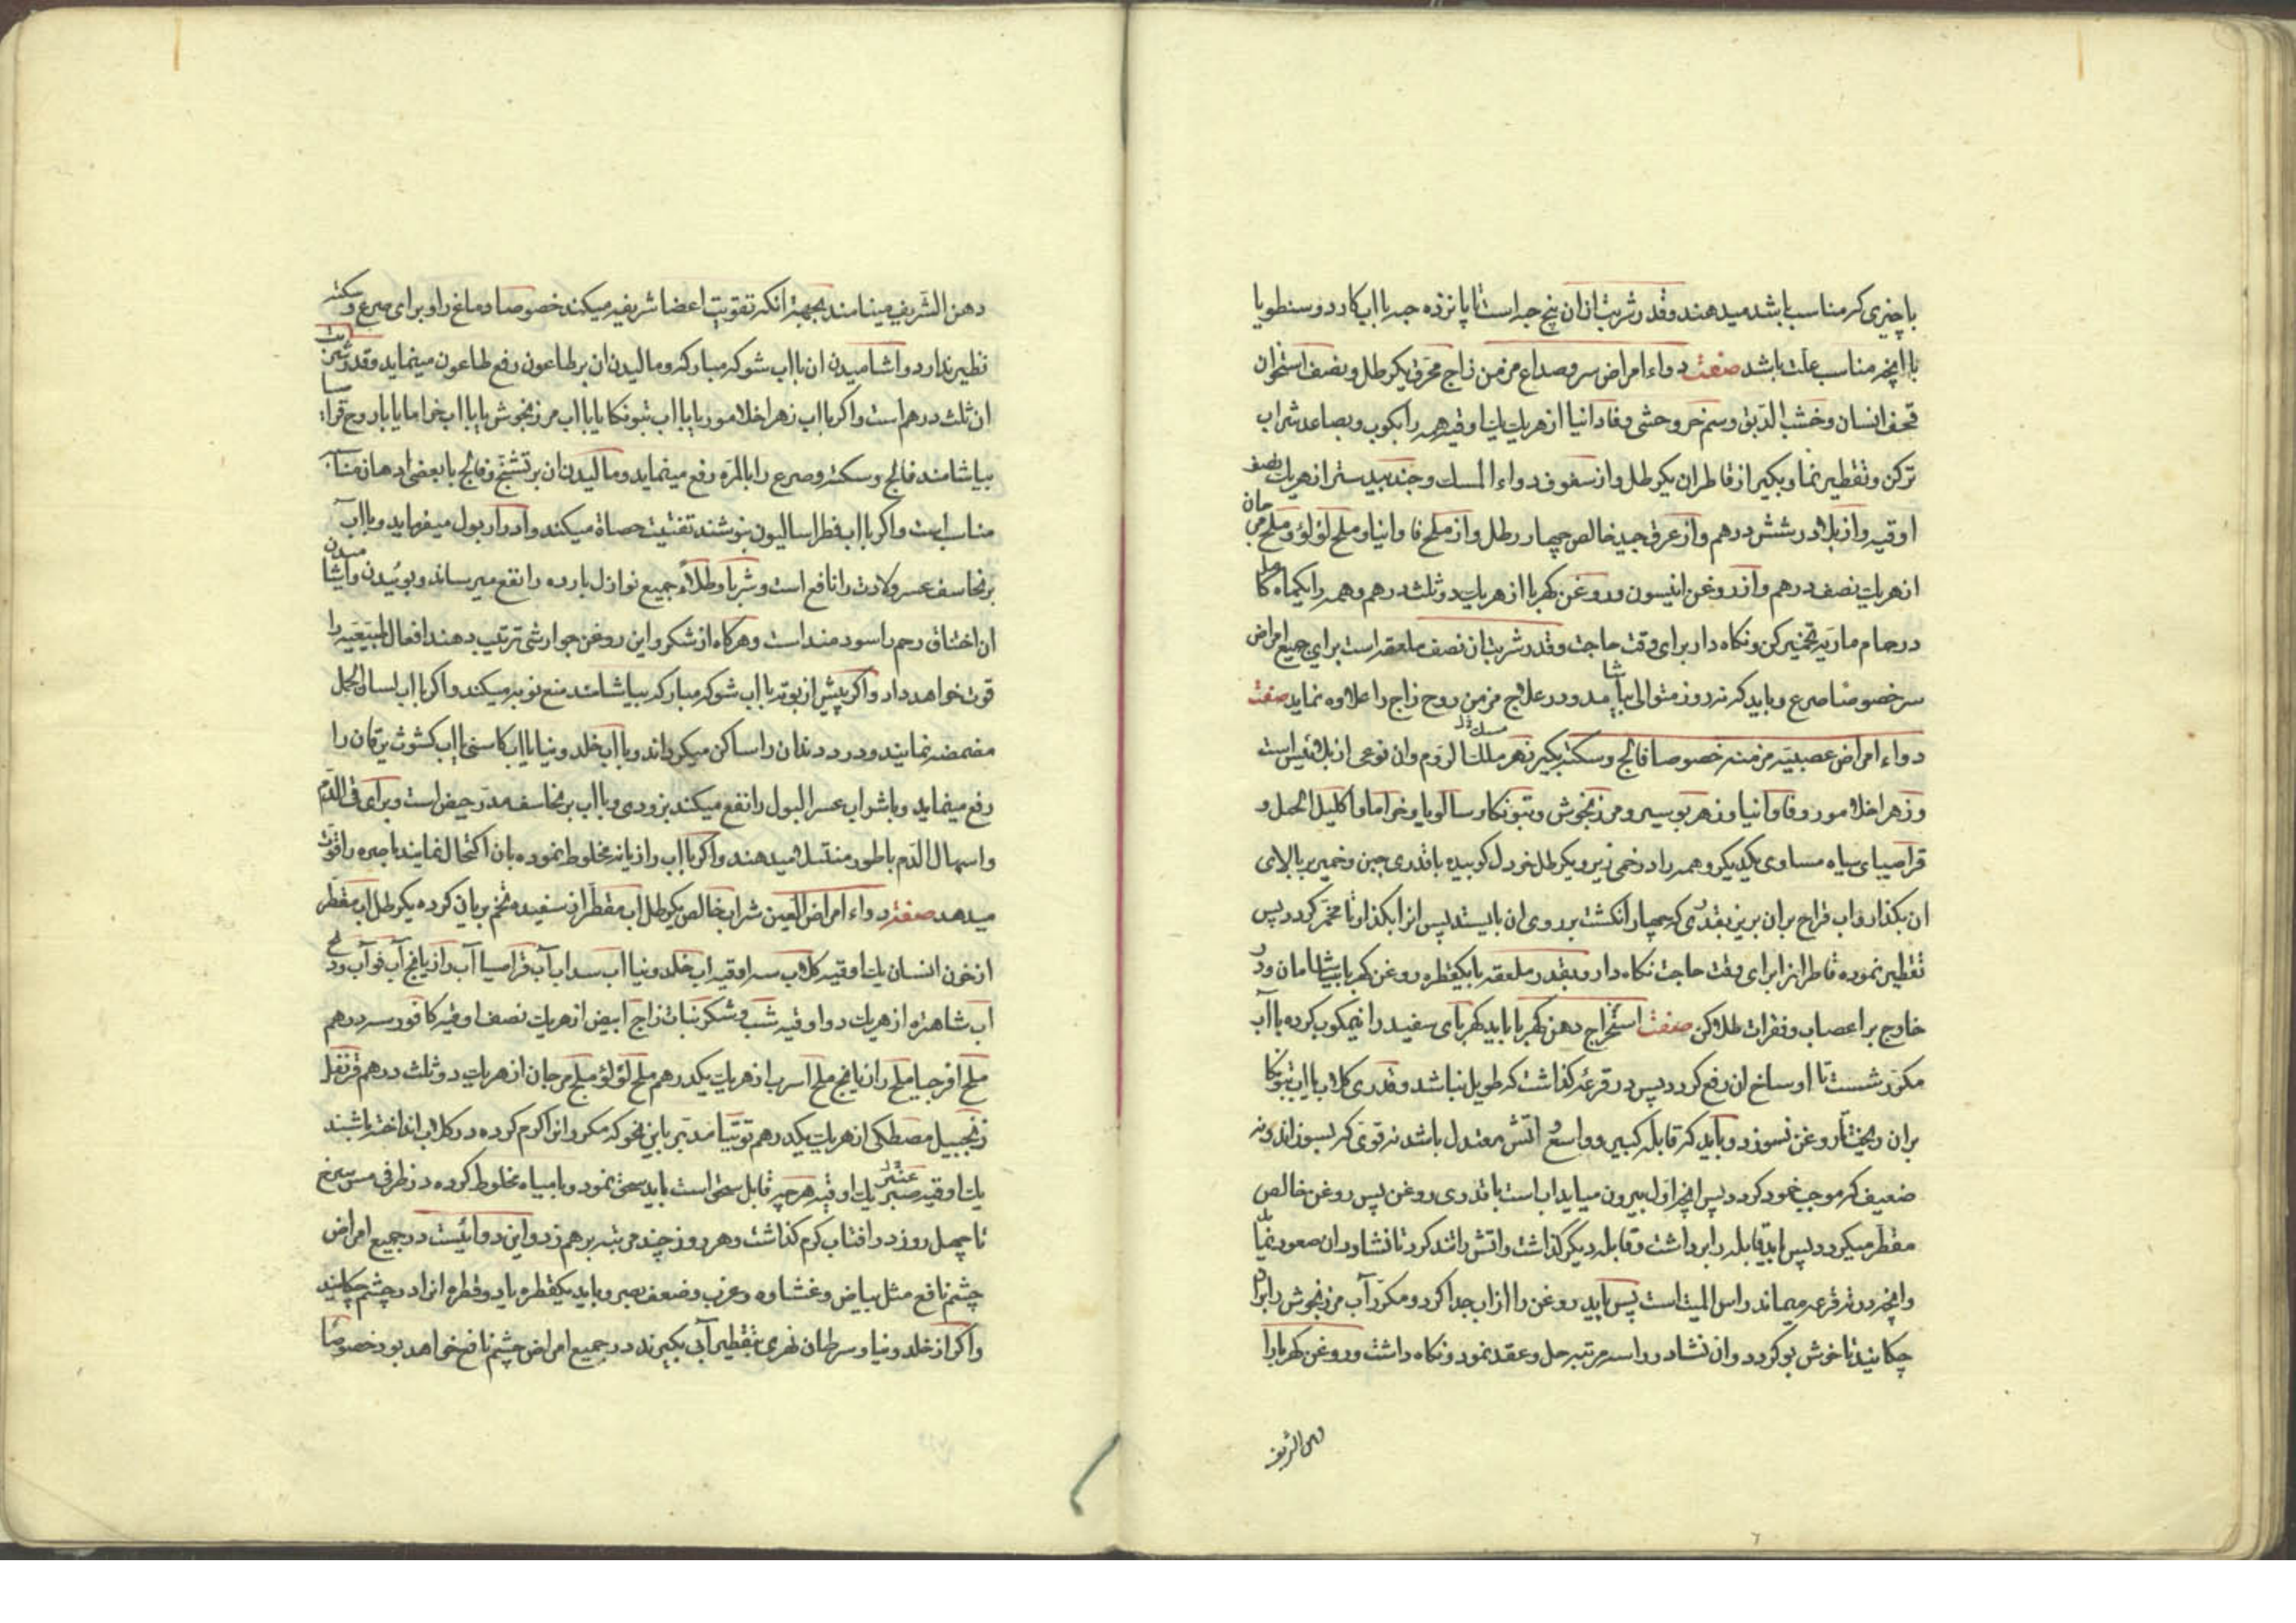 با چیزی که مناسب باشد میدهند و قدر شربت از ان پنج حبه است تا پانزده حبه با اب کادر دوس نطویا
با انچه مناسب علت باشد صفت دواء امراض سر و صداع مزمن زاج محرق یکرطل و نصف استخوان
قحف انسان و خشب الدبق و سم خر وحشی و فاوانیا از هریك یك اوقیه همه را بکوب و بصاعد شراب
ترکن و تقطیر نما و بکیر از قاطر ان یکرطل و از سفوف دواء المسك و جندبیدستر از هریك نصف
اوقیه و از بلادر شش درهم و از عرق جید خالص چهار رطل و از ملح فاوانیا و ملح لؤلؤ و ملح مرجان
از هریك نصف درهم و از روغن انیسون و روغن کهربا از هریك دو ثلث درهم و همه را یکماه کامل
در حمام ماریه تخمیر کن و نکاه دار برای وقت حاجت و قدر شربت ان نصف ملعقه است برای جمیع امراض
سر خصوصا صرع و باید که نه روز متوالی بیاشامد و در علاج مزمن روح زاج را علاوه نماید صفت
دواء امراض عصبیه مزمنه خصوصا فالج و سکته بکیر زهر ملك الروم و ان نوعی از بلا‌ئیس است
و زهر اخلامور و فاوانیا و زهر بوسیر و مرزنجوش و بتونکا و سالویا و خراما و اکلیل الجبل و
قراصیای سیاه مساوی یکدیکر و همه را در خمی ریز و یکرطل خردل کوبیده با قدری جبن و خمیر بر بالای
ان بکذار و اب قراح بر ان بریز بقدری که چهار انکشت بر روی ان بایستد پس انرا بکذار تا مخمر کردد پس
تقطیر نموده قاطر انرا برای وقت حاجت نکاه دار و بقدر ملعقه با یکقطره روغن کهربا بیاشامان و در
خارج بر اعصاب و فقرات طلا کن صفت استخراج دهن کهربا باید کهربای سفید را نیمکوب کرده با آب
مکرر شست تا اوساخ ان رفع کردد پس در قرعه کذاشت که طویل نباشد و قدری کلاب یا اب بتونکا
بران ریخت تا روغن نسوزد و باید که قابله کبیر و واسع و اتش معتدل باشد نه قوی که بسوزاند و نه
ضعیف که موجب خمود کردد پس انچه اول بیرون میاید اب است با قدری روغن پس روغن خالص
مقطر میکردد پس باید قابله را برداشت و قابله دیگر کذاشت و اتش را تند کرد تا نشادر ان صعود نماید
و انچه در ته قرعه میماند راس المیت است پس باید روغن را از اب جدا کرد و مکرر آب مرزنجوش را بران
چکانید تا خوش بو کردد و ان نشادر را سه مرتبه حل و عقد نمود و نکاه داشت و روغن کهربا را
دهن الشریف
دهن الشریف مینامند بجهة انکه تقویت اعضا شریفه میکند خصوصا دماغ را و برای صرع و سکته
نظیر ندارد و اشامیدن ان با اب شوکه مبارکه و مالیدن ان بر طاعون رفع طاعون مینماید و قدر شربت
ان ثلث درهم است و اکر با اب زهر اخلامور یا با اب بتونکا یا با اب مرزنجوش یا با اب خراما یا با روح قراصیا
بیاشامند فالج و سکته و صرع را بالمره رفع مینماید و مالیدن ان بر تشنج و فالج با بعضی ادهان مناسبه
مناسب است و اکر با اب فطراسالیون بنوشند تفتیت حصاة میکند و ادرار بول میفرماید و با آب
برنجاسف عسر ولادت را نافع است و شربا و طلاءً جمیع نوازل بارده را نفع میرساند و بوئیدن و اشامیدن
ان اختناق رحم را سودمند است و هرکاه از شکر و این روغن جوارشی ترتیب دهند افعال طبیعیه را
قوت خواهد داد و اکر پیش از نوبه با اب شوکه مبارکه بیاشامند منع نوبه میکند و اکر با اب لسان الحمل
مضمضه نمایند درد دندان را ساکن میکرداند و با اب خلدونیا یا اب کاسنی یا اب کشوث یرقان را
رفع مینماید و با شراب عسر البول را نفع میکند بزودی و با اب برنجاسف مدر حیض است و برای قی الدم
و اسهال الدم با طورمنتیلا میدهند و اکر با اب رازیانه مخلوط نموده بان اکتحال نمایند باصره را قوت
میدهد صفت دواء امراض العین شراب خالص یکرطل اب مقطر از سفیده تخم بریان کرده یکرطل اب مقطر
از خون انسان یك اوقیه کلاب سه اوقیه اب خلدونیا اب سداب آب قراصیا آب رازیانج آب فو آب ورد
اب شاهتره از هریك دو اوقیه شب و شکر نبات زاج ابیض از هریك نصف اوقیه کافور سه درهم
ملح افرجیا ملح رازیانج ملح اسرب از هریك یکدرهم ملح لؤلؤ ملح مرجان از هریك دو ثلث درهم قرنفل
زنجبیل مصطکی از هریك یکدرهم توتیا مدبر باین نحو که مکرر انرا کرم کرده در کلاب انداخته باشند
یك اوقیه صبر یك اوقیه هرچه قابل سحق است باید سحق نمود و با میاه مخلوط کرده در ظرفی مس سرخ
تا چهل روز در افتاب کرم کذاشت و هر روز چند مرتبه برهم زد و این دوائیست در جمیع امراض
چشم نافع مثل بیاض و غشاوه و غرب و ضعف بصر و باید یکقطره یا دو قطره انرا در چشم چکانید
و اکر از خلدونیا و سرطان نهری بتقطیر آبی بکیرند در جمیع امراض چشم نافع خواهد بود خصوصًا